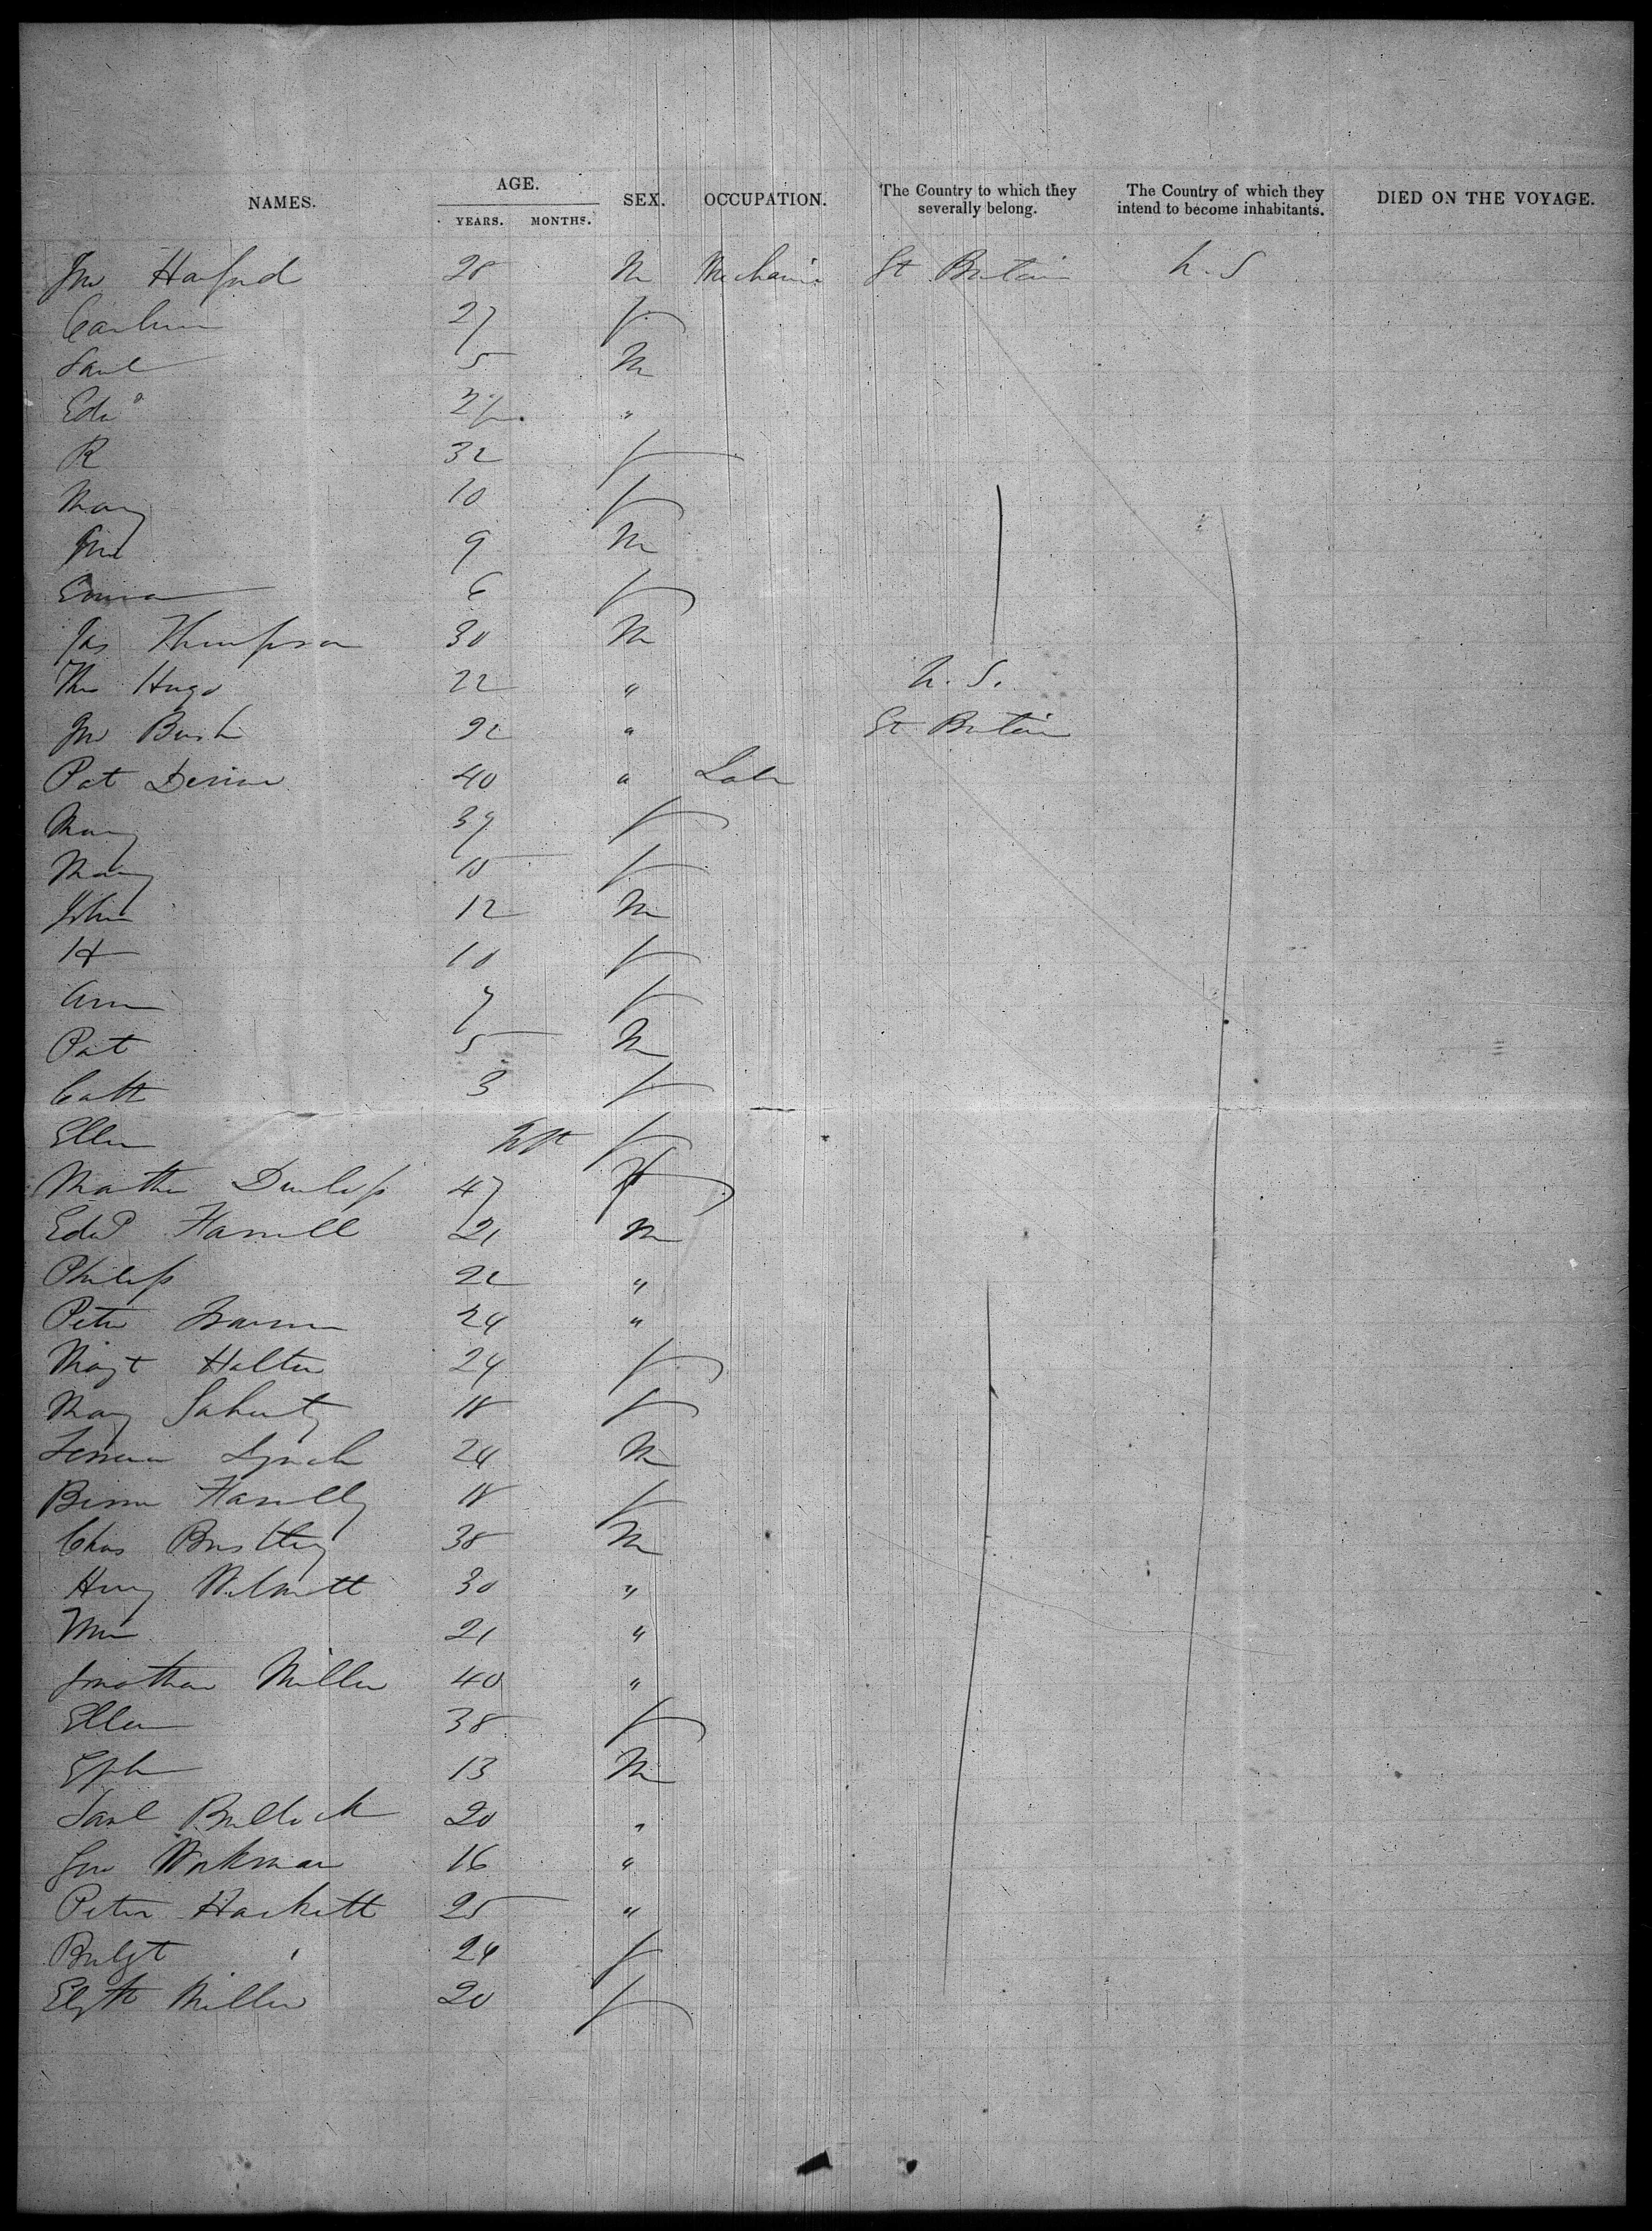 NAMES. AGE. SEX. OCCUPATION. The Country to which they severally belong. The Country of which they intend to become inhabitants. DIED ON THE VOYAGE.
YEARS. MONTHS.
Jno Harford 28 M Mechanic Gt Britain U.S
27 f
Saml 5 M
Edwd 2 "
R 32 f
Mary 10 f
Jno 9 M
Emma 6 f
Jas Thompson 30 M
Tho Hugo 22 " U.S.
Jno Bush 22 " Gt Britain
Pat Devine 40 " Labr
Mary 39 f
Mary 15 f
John 12 M
H 10 f
Ann 7 f
Pat 5 M
Cath 3 f
Ellen Inft f
Martha Dunlop 47 f
Edwd Farrell 21 M
Philip 22 "
Peter 24 "
Magt Halter 24 f
Mary 18 f
Lynch 24 M
18 f
Chas 38 M
Henry Wilmott 30 "
Wm 21 "
Jonathan Miller 40 "
Ellen 38 f
Eph 13 M
Saml Bullock 20 "
Jno Workman 16 "
Peter Hackett 25 "
Bridgt " 24 f
Elizth Miller 20 f